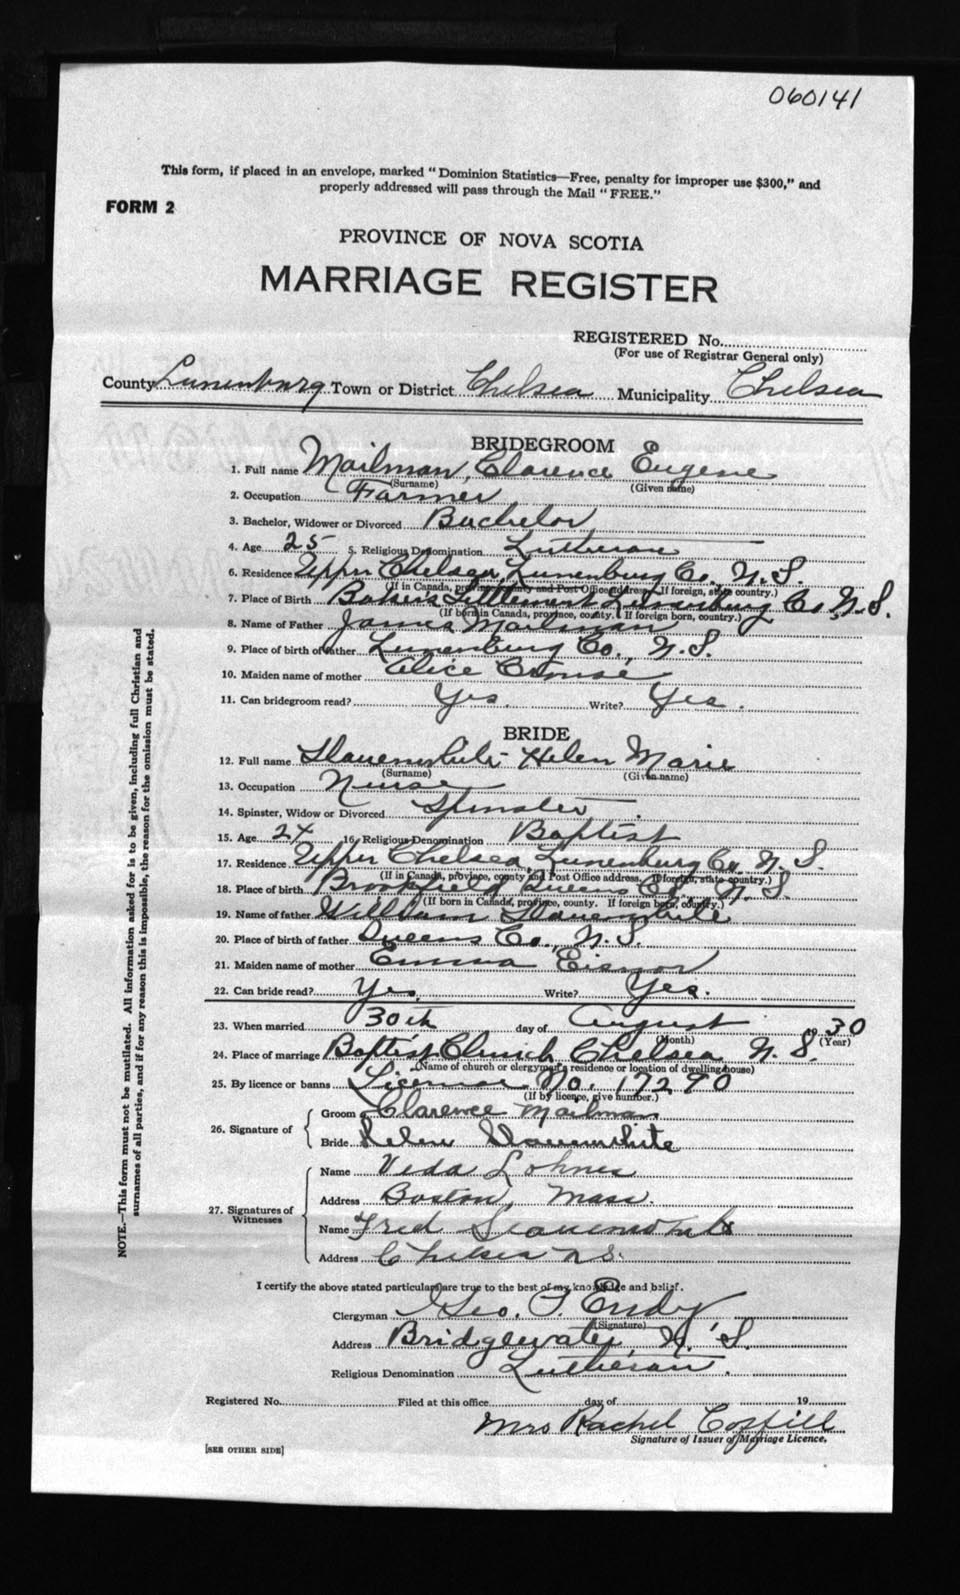 060141
This form, if placed in an envelope, marked "Dominion Statistics—Free, penalty for improper use $300," and
properly addressed will pass through the Mail "FREE."
FORM 2
PROVINCE OF NOVA SCOTIA
MARRIAGE REGISTER
REGISTERED No.
(For use of Registrar General only)
County Lunenburg Town or District Chelsea Municipality Chelsea
BRIDEGROOM
1. Full name Mailman, Clarence Eugene
(Surname) (Given name)
2. Occupation Farmer
3. Bachelor, Widower or Divorced Bachelor
4. Age 25 5. Religious Denomination Lutheran
6. Residence Upper Chelsea, Lunenburg Co., N.S.
(If in Canada, province, county and Post Office address. If foreign, state country.)
7. Place of Birth Bakers Settlement Lunenburg Co., N.S.
(If born in Canada, province, county. If foreign born, country.)
8. Name of Father James Mailman
9. Place of birth of father Lunenburg Co., N.S.
10. Maiden name of mother Alice Crouse
11. Can bridegroom read? Yes. Write? Yes.
BRIDE
12. Full name Slauenwhite Helen Marie
(Surname) (Given name)
13. Occupation Nurse
14. Spinster, Widow or Divorced Spinster
15. Age 24 16. Religious Denomination Baptist
17. Residence Upper Chelsea, Lunenburg Co. N.S.
(If in Canada, province, county and Post Office address. If foreign, state country.)
18. Place of birth Brookfield Queens Co., N.S.
(If born in Canada, province, county. If foreign born, country.)
19. Name of father William Slauenwhite
20. Place of birth of father Queens Co., N.S.
21. Maiden name of mother Emma Eisnor
22. Can bride read? Yes. Write? Yes.
23. When married 30th day of August 1930
(Month) (Year)
24. Place of marriage Baptist Church, Chelsea N.S.
(Name of church or clergyman's residence or location of dwelling house)
25. By licence or banns License No. 17290
(If by licence, give number.)
26. Signature of
Groom Clarence Mailman
Bride Helen Slauenwhite
27. Signatures of Witnesses
Name Veda Lohnes
Address Boston, Mass.
Name Fred Slauenwhite
Address Chelsea N S.
I certify the above stated particulars are true to the best of my knowledge and belief.
Clergyman Geo. F. Endy
(Signature)
Address Bridgewater, N.S.
Religious Denomination Lutheran.
Registered No. Filed at this office day of 19
Mrs Rachel
Signature of Issuer of Marriage Licence.
[SEE OTHER SIDE]
NOTE.—This form must not be mutilated. All information asked for is to be given, including full Christian and
surnames of all parties, and if for any reason this is impossible, the reason for the omission must be stated.